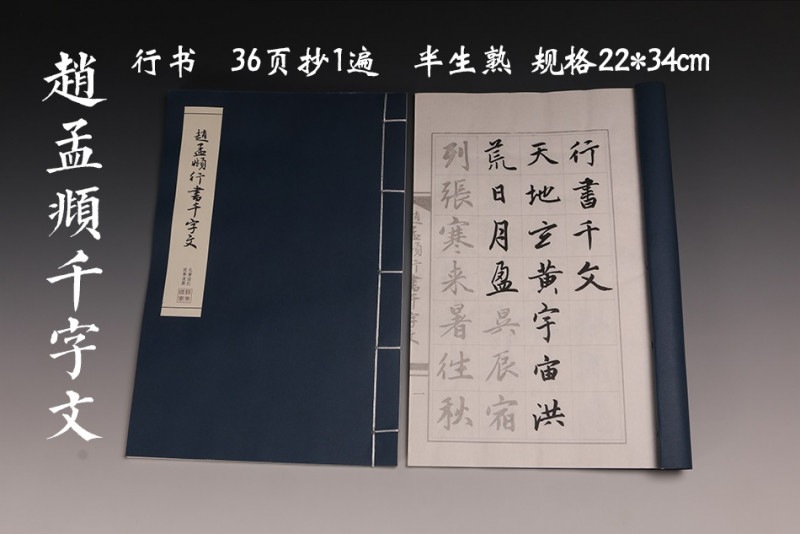 行书 36页抄1遍 半生熟 规格22*34cm
趙孟頫千字文
趙孟頫行書千字文
行書千文
天地玄黃宇宙洪
荒日月盈昃辰宿
列張寒来暑往秋
趙孟頫行書千字文
一